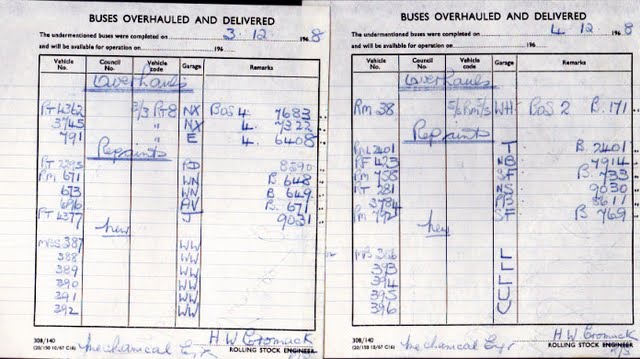 BUSES OVERHAULED AND DELIVERED
The undermentioned buses were completed on 3.12 1968
and will be available for operation on 196
Vehicle No. Council No. Vehicle code Garage Remarks
Overhauls
RT 4362 3/3 RT8 NX BOS 4. 7683
3745 " NX 4. 7322
791 " E 4. 6408
Repaints
RT 2295 RD 8390
RM 671 WN B. 648
673 WN B. 649
696 AV B. 671
RT 4377 J 9031
New
MBS 387 WW
388 WW
389 WW
390 WW
391 WW
392 WW
308/140
(20/150 10/67 C16)
Mechanical
H W Cromack
ROLLING STOCK ENGINEER
BUSES OVERHAULED AND DELIVERED
The undermentioned buses were completed on 4.12 1968
and will be available for operation on 196
Vehicle No. Council No. Vehicle code Garage Remarks
Overhauls
RM 38 WH BOS 2 B. 171
Repaints
RML 2401 T B. 2401
RF 423 NB 7914
RM 758 SF B. 733
RT 281 NS 9030
3784 PB 8611
RM 792 SF B. 769
New
MB 386 L
393 L
394 L
395 U
396 U
308/140
(20/150 10/67 C16)
Mechanical
H W Cromack
ROLLING STOCK ENGINEER